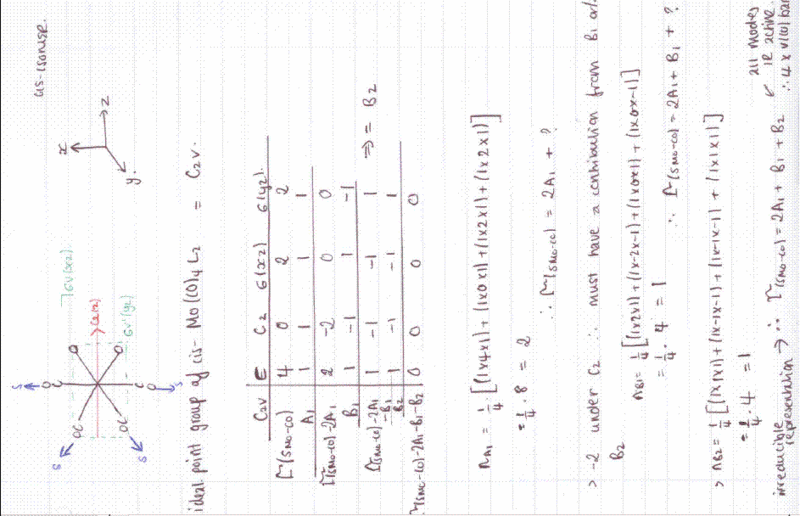 cis-isomer.
x
z
y
S
S
S
S
OC
OC
O
C
C
O
σv(xz)
C2(z)
σv'(yz)
ideal point group of cis- Mo(CO)4 L2 = C2v.
C2v E C2 σ(xz) σ(yz).
Γ(SMo-CO) 4 0 2 2
A1 1 1 1 1
Γ(SMo-CO)-2A1 2 -2 0 0
B1 1 -1 1 -1
Γ(SMo-CO)-2A1-B1 1 -1 -1 1 ⇒ = B2
B2 1 -1 -1 1
Γ(SMo-CO)-2A1-B1-B2 0 0 0 0
nA1 = 1/4 [(1x4x1) + (1x0x1) + (1x2x1) + (1x2x1)]
= 1/4 . 8 = 2
∴ Γ(SMo-CO) = 2A1 + ?
> -2 under C2 ∴ must have a contribution from B1 or
B2
nB1 = 1/4 [(1x2x1) + (1x-2x-1) + (1x0x1) + (1x0x-1)]
= 1/4 . 4 = 1
∴ Γ(SMo-CO) = 2A1 + B1 + ?
> nB2 = 1/4 [(1x1x1) + (1x-1x-1) + (1x-1x-1) + (1x1x1)]
= 1/4 . 4 = 1
irreducible representation → ∴ Γ(SMo-CO) = 2A1 + B1 + B2
all modes
IR active.
∴ 4 x ν(CO)